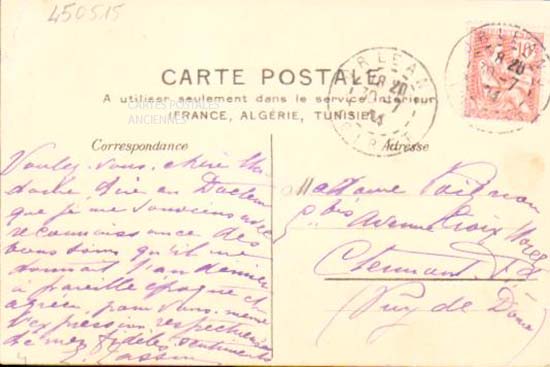 450515
CARTE POSTALE
A utiliser seulement dans le service intérieur
(FRANCE, ALGÉRIE, TUNISIE)
CARTES POSTALES
ANCIENNES
ORLEANS
8 20
30 -7
LOIRET
Correspondance
Voulez-vous, chère Ma-
dame, dire au Docteur
que je me souviens avec
reconnaissance des
bons soins qu'il me
donnait l'an dernier
à pareille époque et
agréer, pour vous-même
l'expression respectueuse
de mes fidèles sentiments
Adresse
Madame
bis Avenue Croix
Clermont-Fd
(Puy de Dôme)